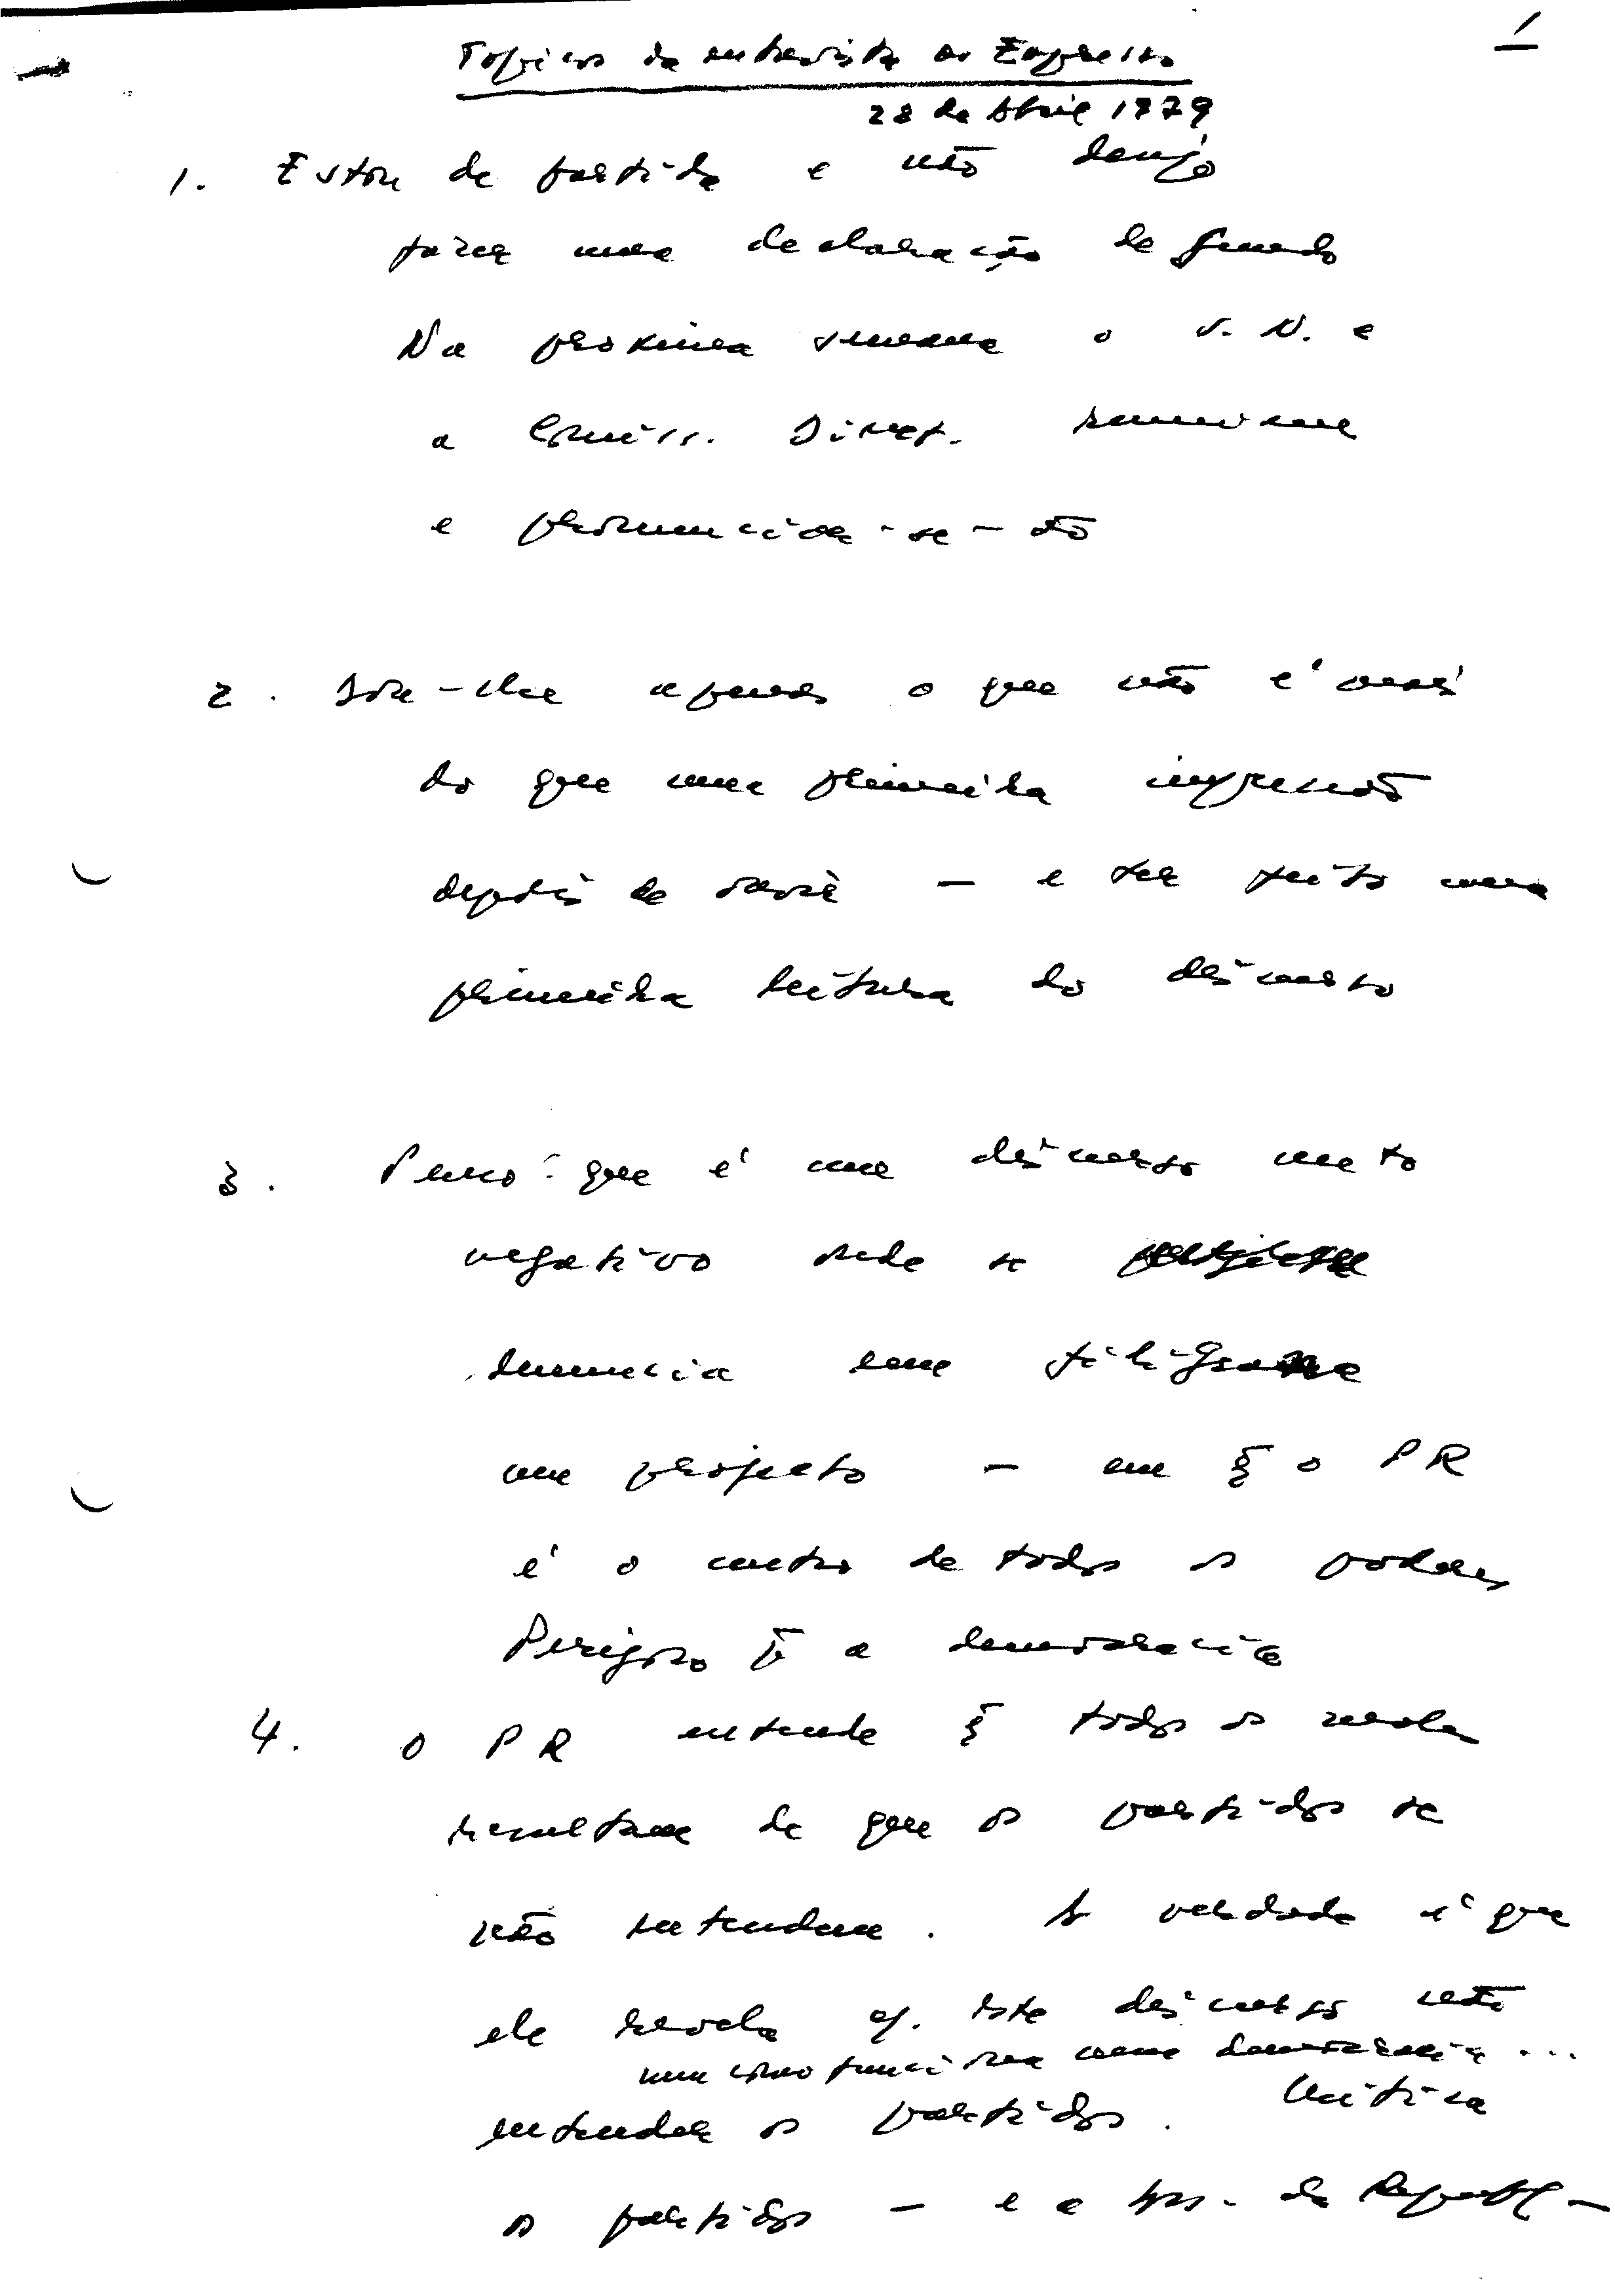 1
Topicos da entrevista ao Expresso
28 de Abril 1979
1. Estou de partida e não desejo
fazer uma declaração de fundo
Na proxima semana o S. N. e
a Comiss. Direct. reunirme
e pronunciar-se-ão
2. Dou-lhe apenas o que não é mais
do que uma primeira impressão
depois de ouvir — e ter feito uma
primeira leitura do discurso
3. Penso: que é um discurso muto
negativo onde se
denuncia em filigrane
um projecto — em q̃ o PR
é o centro de todos os poderes
Perigoso p̃ a democracia
4. O PR entende q̃ todos os males
resultam de que os partidos se
não entendem. A verdade é que
ele revela c/. este discurso não
nem como funciona uma democracia ...
entender os partidos. Critica
os partidos — e a Ass. da Republ-